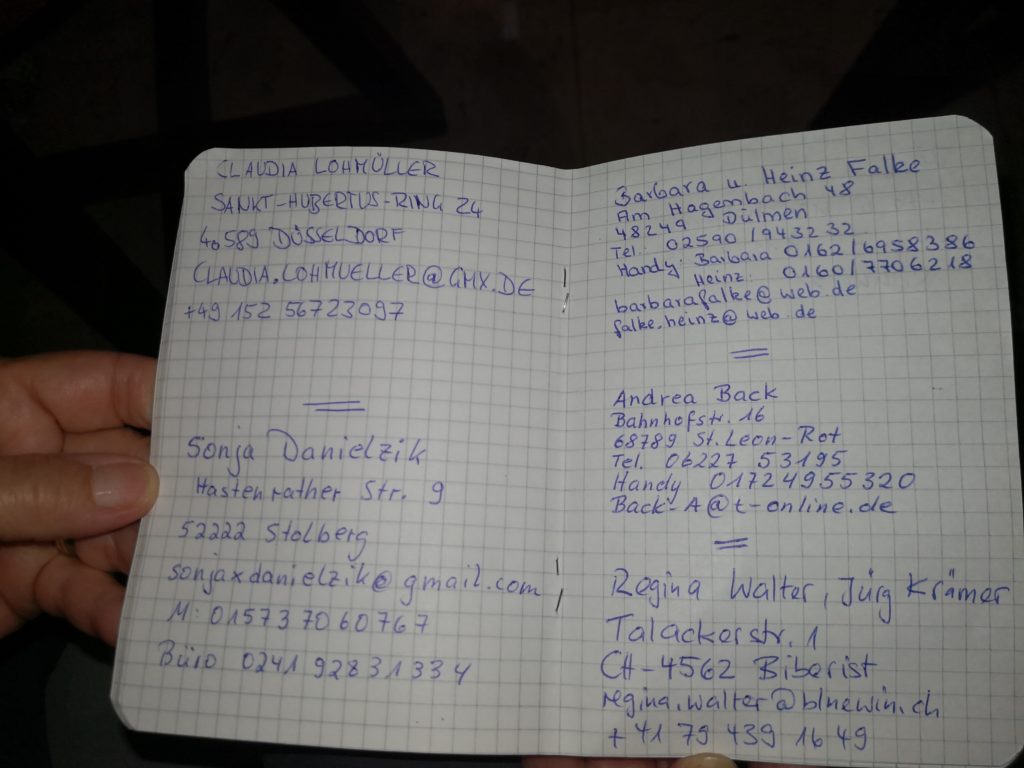 CLAUDIA LOHMÜLLER
SANKT-HUBERTUS-RING 24
40589 DÜSSELDORF
CLAUDIA.LOHMUELLER@GMX.DE
+49 152 56723097
Sonja Danielzik
Hastenrather Str. 9
52222 Stolberg
sonjaxdanielzik@gmail.com
M: 01573 7060767
Büro 0241 92831334
Barbara u. Heinz Falke
Am Hagenbach 48
48249 Dülmen
Tel. 02590/943232
Handy: Barbara 0162/6958386
Heinz: 0160/7706218
barbarafalke@web.de
falke.heinz@web.de
Andrea Back
Bahnhofstr. 16
68789 St. Leon-Rot
Tel. 06227 53195
Handy 01724955320
Back-A@t-online.de
Regina Walter, Jürg Krämer
Talackerstr. 1
CH-4562 Biberist
regina.walter@bluewin.ch
+41 79 439 16 49